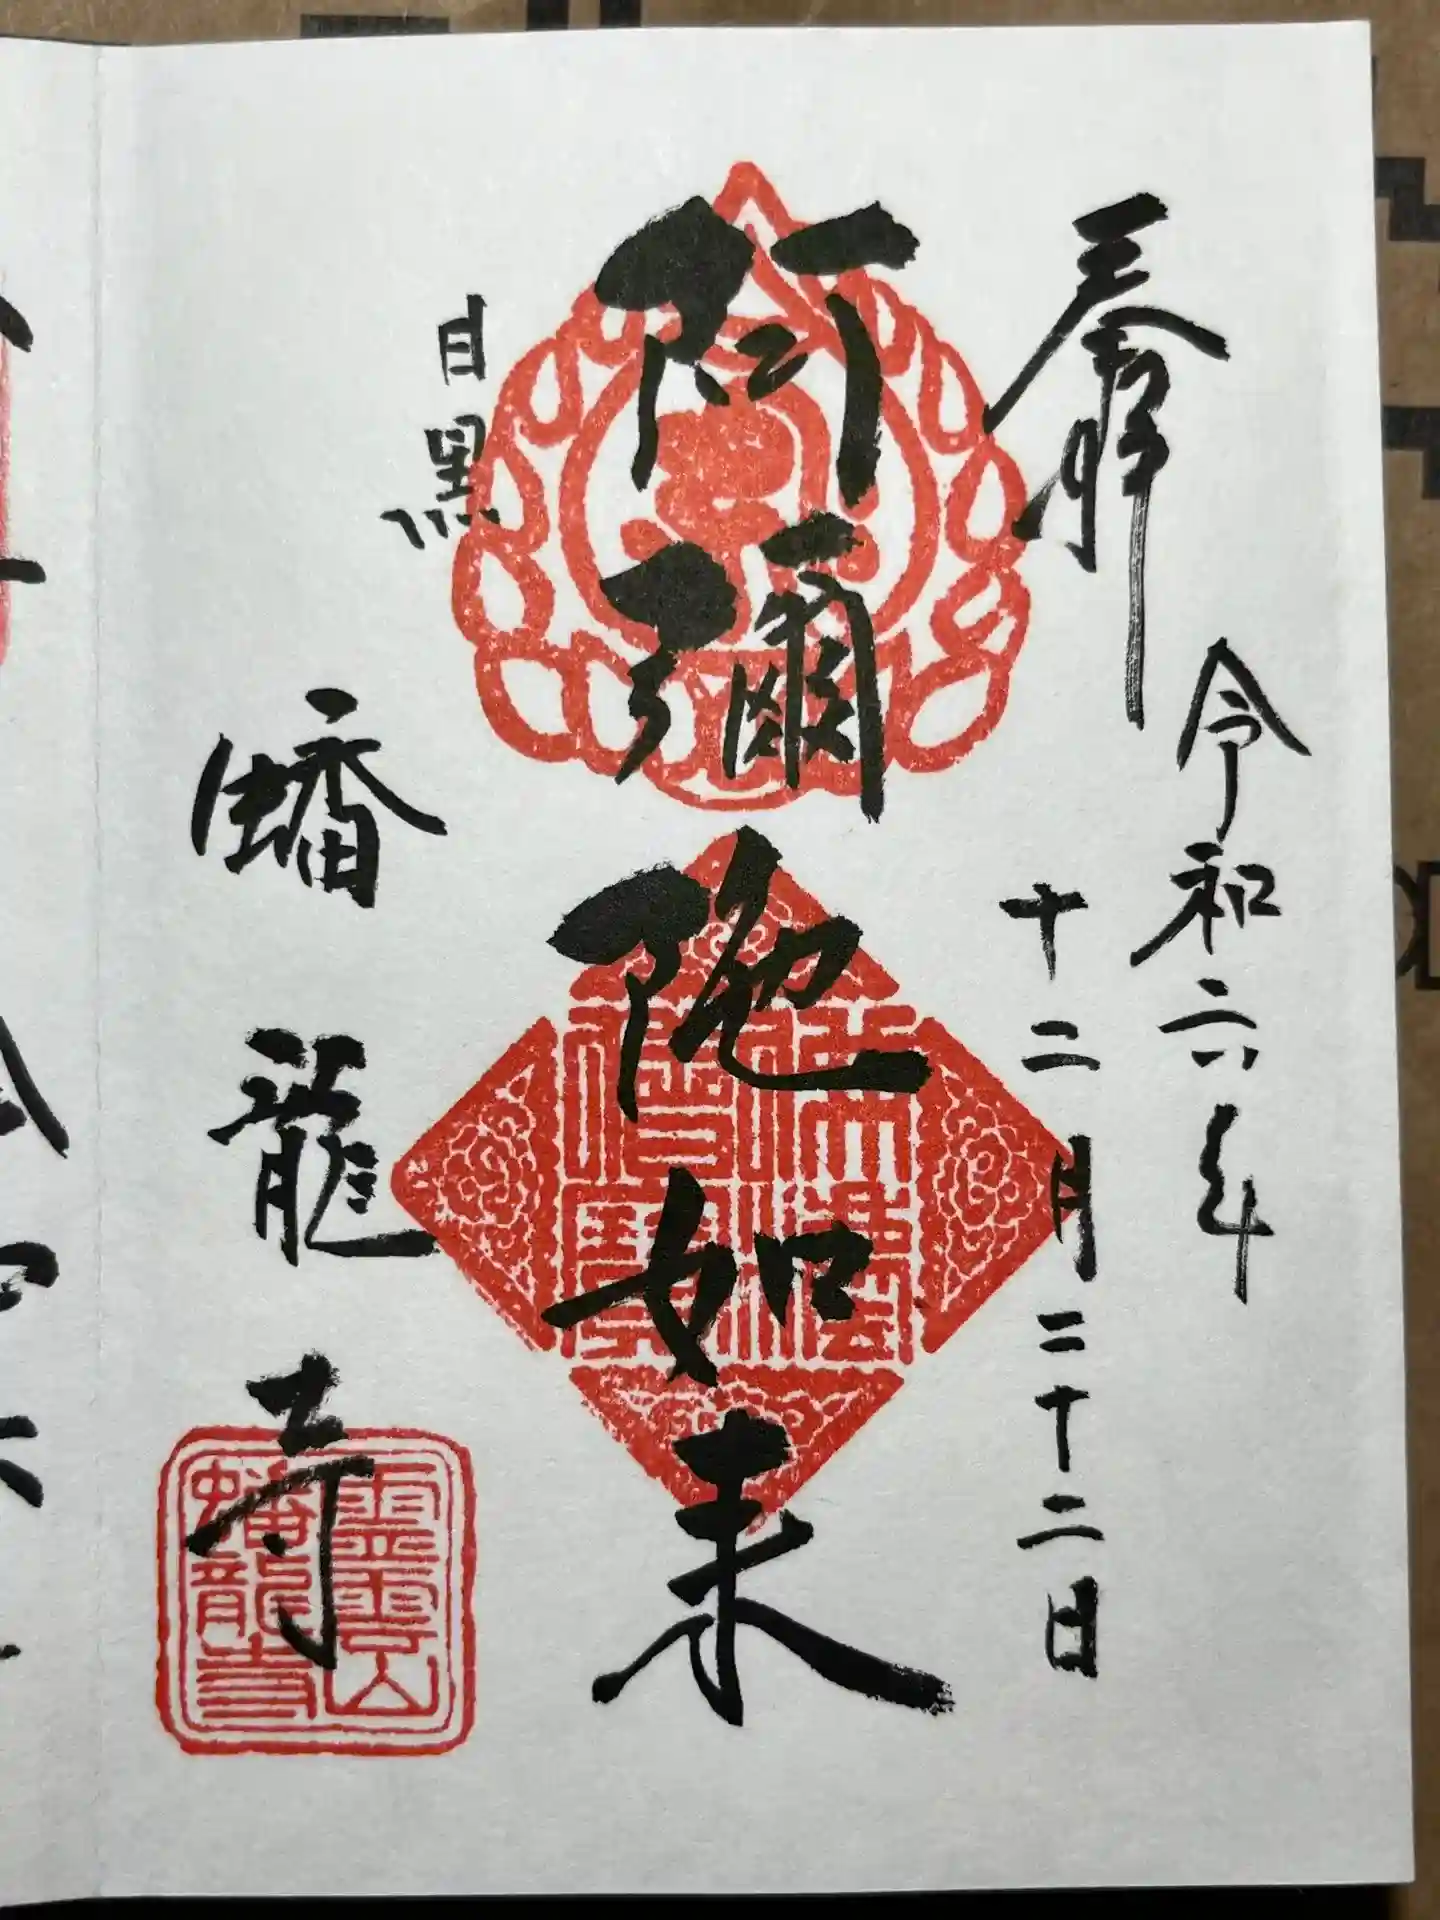 奉拝
令和六年
十二月二十二日
阿彌陀如来
目黒
蟠龍寺
霊雲山
蟠龍寺